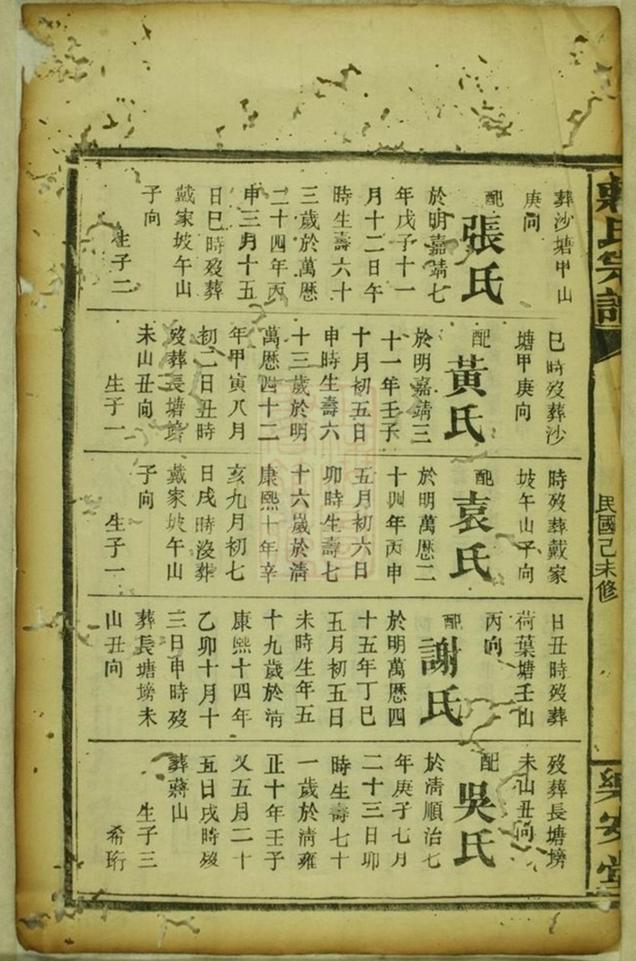 氏宗譜
民國己未修
樂安堂
葬沙塘甲山
庚向
配張氏
於明嘉靖七
年戊子十一
月十二日午
時生壽六十
三歲於萬歷
二十四年丙
申三月十五
日巳時歿葬
戴家坡午山
子向
生子二
巳時歿葬沙
塘甲庚向
配黃氏
於明嘉靖三
十一年壬子
十月初五日
申時生壽六
十三歲於明
萬歷四十二
年甲寅八月
初二日丑時
歿葬長塘塝
未山丑向
生子一
時歿葬戴家
坡午山子向
配袁氏
於明萬歷二
十四年丙申
五月初六日
卯時生壽七
十六歲於清
康熙十年辛
亥九月初七
日戌時沒葬
戴家坡午山
子向
生子一
日丑時歿葬
荷葉塘壬山
丙向
配謝氏
於明萬歷四
十五年丁巳
五月初五日
未時生年五
十九歲於清
康熙十四年
乙卯十月十
三日申時歿
葬長塘塝未
山丑向
歿葬長塘塝
未山丑向
配吳氏
於清順治七
年庚子七月
二十三日卯
時生壽七十
一歲於清雍
正十年壬子
又五月二十
五日戌時歿
葬蔣山
生子三
希珩